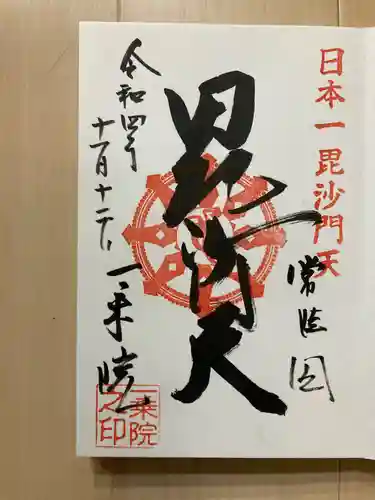 日本一毘沙門天
常陸国
毘沙門天
令和四年
十一月十二日
一乗院
一乗院之印